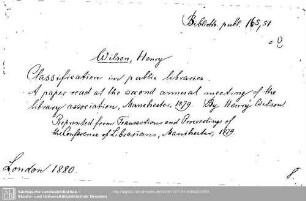 Biblioth. publ. 165,51
Wilson, Henry
Classification in public libraries.
A paper read at the second annual meeting of the
library association, Manchester, 1879. By Henry Wilson
Reprinted from Transactions and Proceedings of
the Conference of Librarians, Manchester, 1879
London 1880.
Sächsische Landesbibliothek -
Staats- und Universitätsbibliothek Dresden